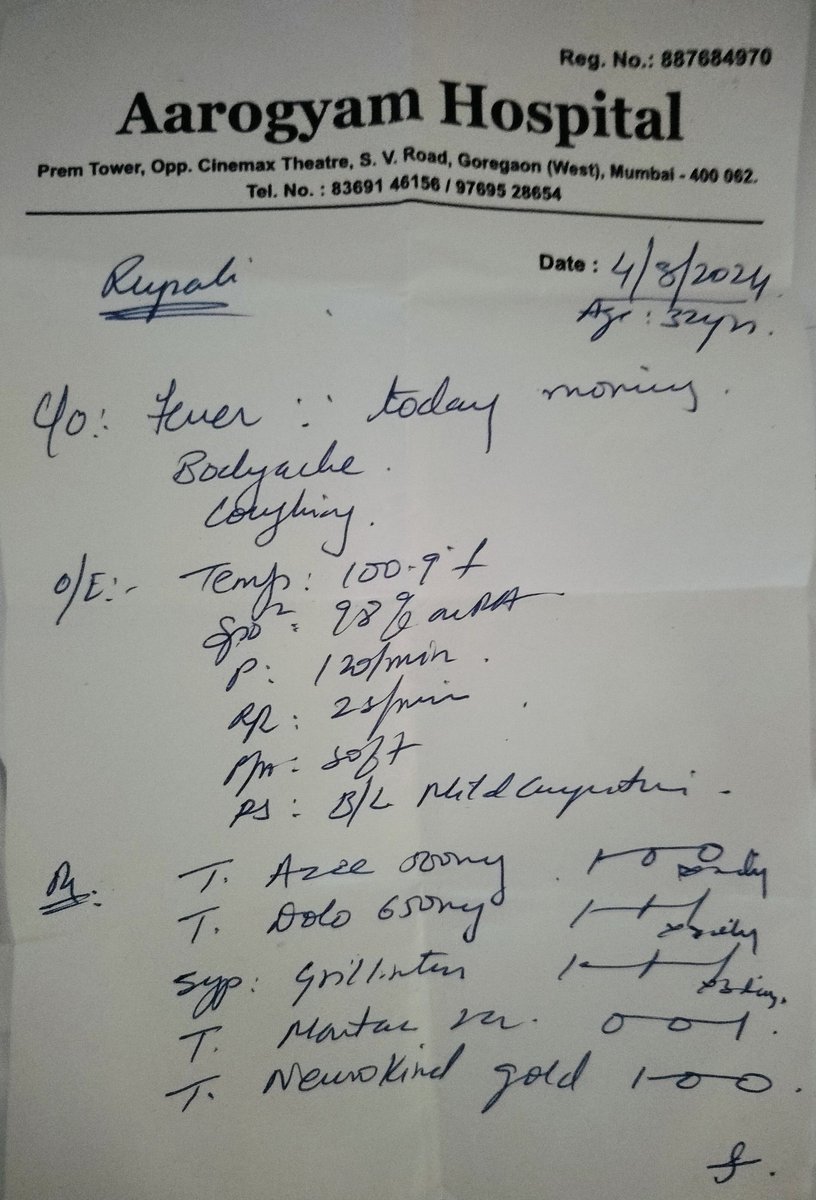 Reg. No.: 887684970
Aarogyam Hospital
Prem Tower, Opp. Cinemax Theatre, S. V. Road, Goregaon (West), Mumbai - 400 062.
Tel. No. : 83691 46156 / 97695 28654
Rupali
Date : 4/8/2024
Age : 32yrs.
C/O:- Fever ∵ today morning.
Bodyache.
Coughing.
O/E:- Temp: 100.9°f
SpO2: 98% on RA
P: 120/min.
RR: 23/min
P/A: Soft
RS: B/L Mild
Rx. T. Azee 500mg 1-0-0
T. Dolo 650mg 1-1-1
Syp: 1-1-1
T. 0-0-1.
T. Neurokind gold 1-0-0.